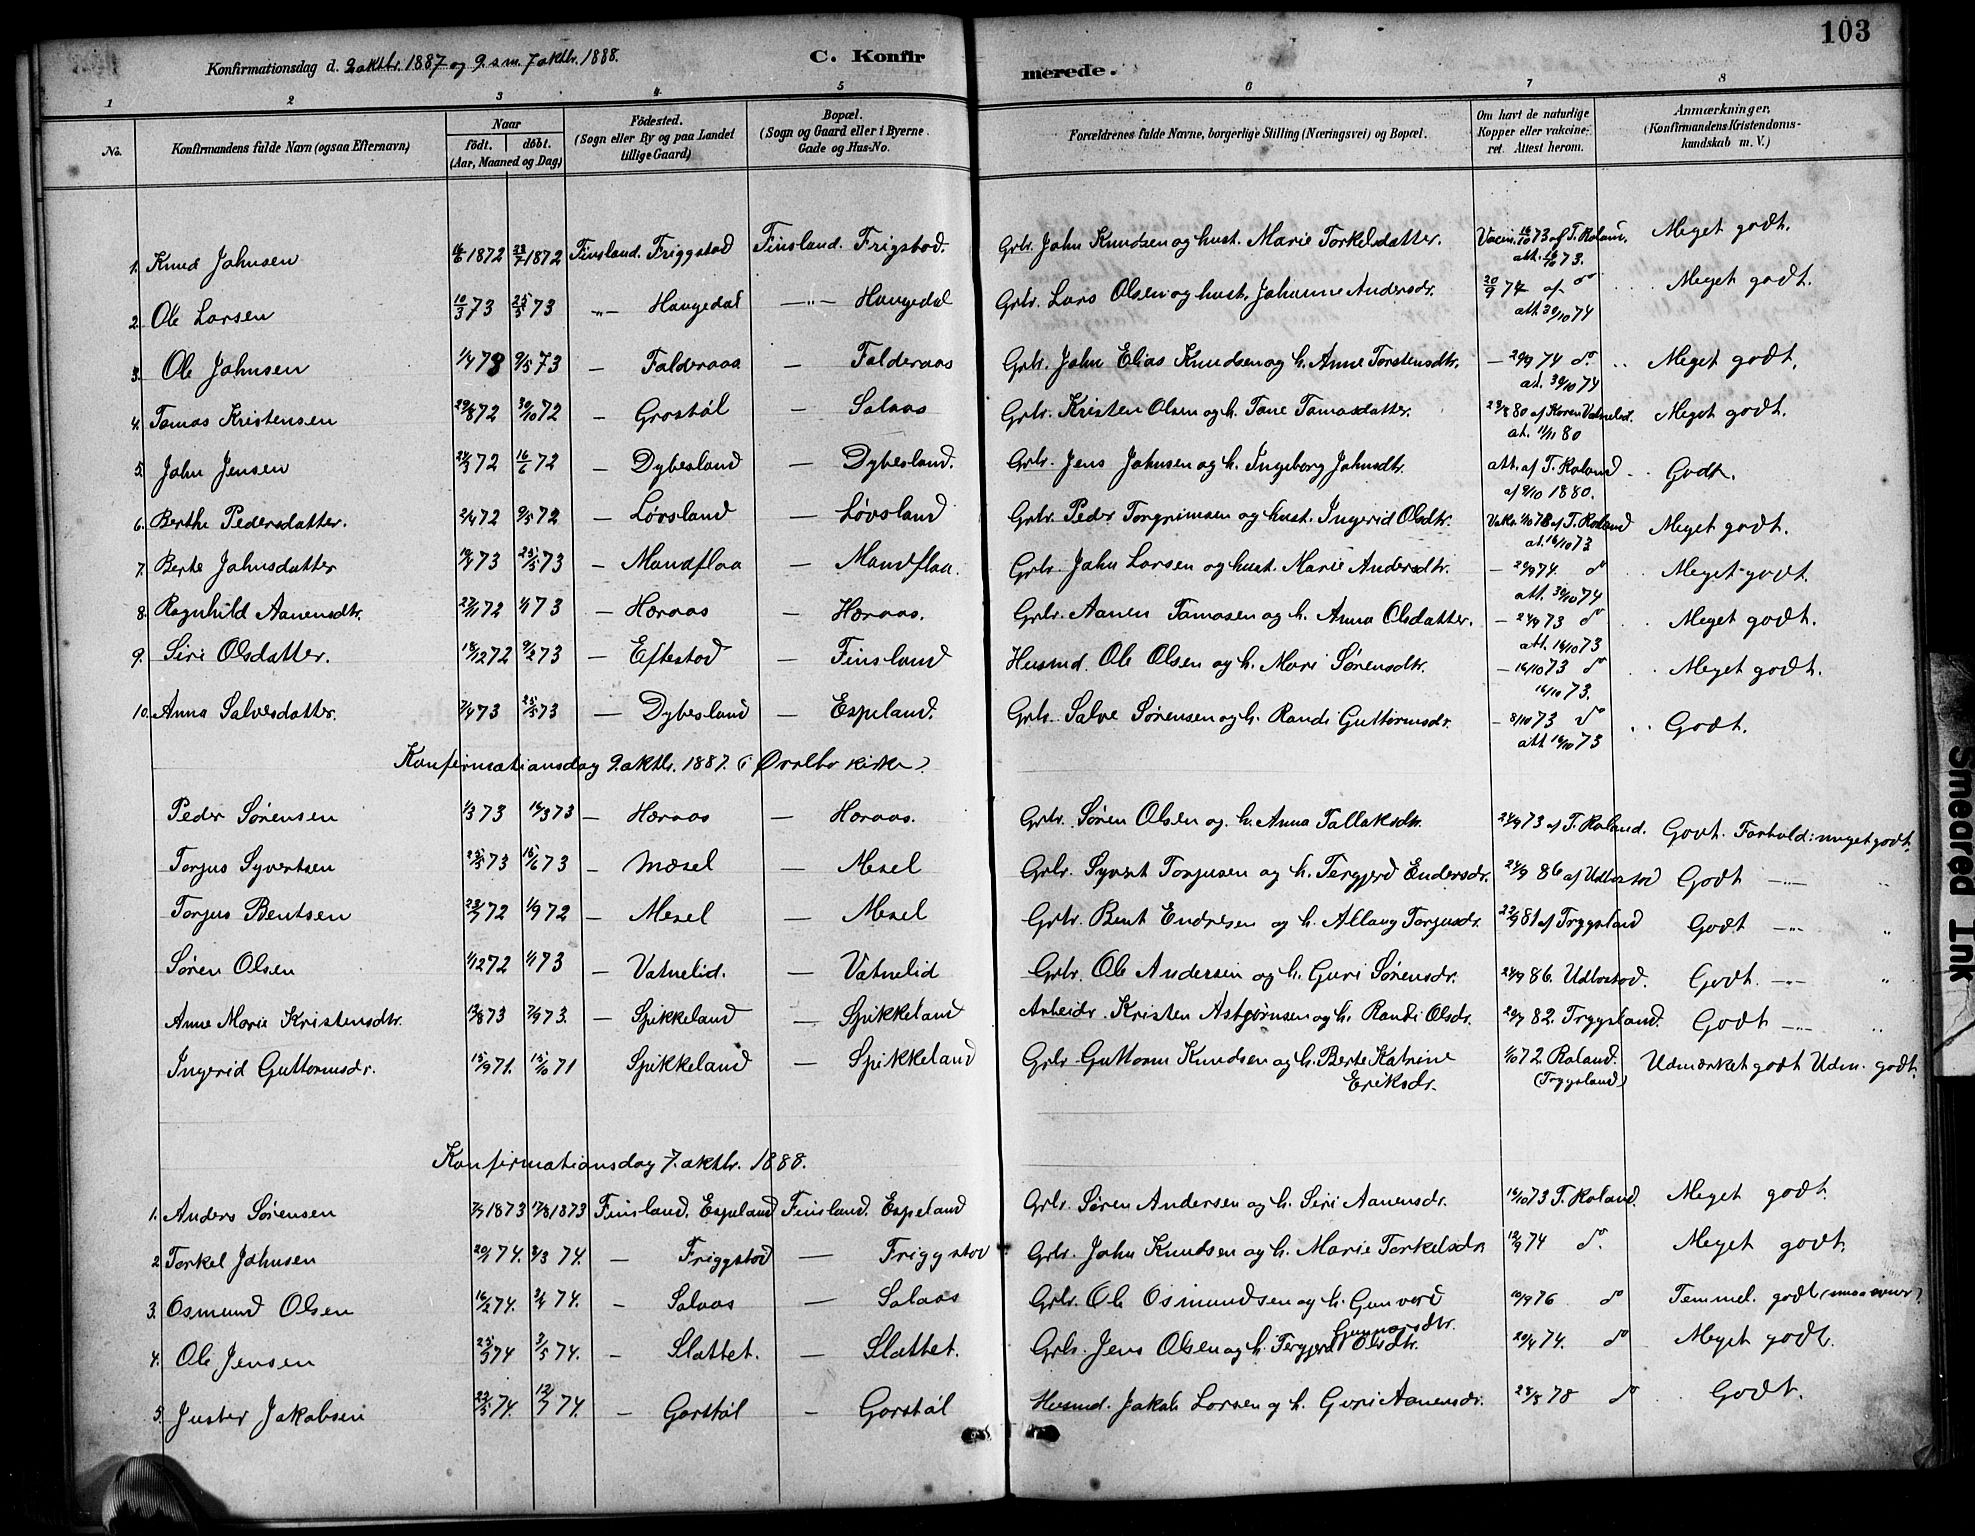 103
Konfirmationsdag d. 2 aktbr. 1887 og 9. s m. 7 aktbr. 1888.
C. Konfirmerede.
1 2 3 4 5 6 7 8
No. Konfirmandens fulde Navn (ogsaa Efternavn) Naar født. døbt. (Aar, Maaned og Dag) Fødested. (Sogn eller By og paa Landet tillige Gaard) Bopæl. (Sogn og Gaard eller i Byerne Gade og Hus-No. Forældrenes fulde Navne, borgerlige Stilling (Næringsvei) og Bopæl. Om havt de naturlige Kopper eller vakcineret. Attest herom. Anmærkninger, (Konfirmandens Kristendomskundskab m. V.)
1. Knud Johnsen 16/6 1872 28/7 1872 Finsland. Friggstad Finsland. Frigstad. Grbr. John Knudsen og hust. Marie Torkelsdatter. Vacin. 16/10 73 af T. Roland. att. 16/10 73. Meget godt.
2. Ole Larsen 10/3 73 25/5 73 -"- Haugedal -"- Haugedal Grbr. Lars Olsen og hust. Johanne Andersdr. 20/9 74 af do att. 30/10 74 Meget godt.
3. Ole Johnsen 1/4 73 9/5 73 — Falderaas — Falderaas Grbr. John Elias Knudsen og h. Anne Torstensdtr. — 29/9 74 do. at. 30/10 74 Meget godt.
4. Tamas Kristensen 29/8 72 30/10 72 — Grostøl — Salaas Grbr. Kristen Olsen og h. Tane Tamasdatter. 23/8 80 af Karen Vatnelid. at. 11/11 80 Meget godt.
5. John Jensen 24/3 72 16/6 72 — Dybesland — Dybesland. Grbr. Jens Johnsen og h. Ingeborg Johnsdtr. att. af T. Roland af 9/10 1880. Godt.
6. Berthe Pedersdatter. 2/4 72 9/5 72 — Løvsland — Løvsland Grbr. Peder Torgrimsen og hust. Ingerid Olsdtr. Vakc. 1/10 73 af T. Roland at. 16/10 73 Meget godt.
7. Berte Johnsdatter 10/4 73 25/5 73 — Mandflaa — Mandflaa. Grbr. John Larsen og hust. Marie Andersdtr. — 29/9 74. do att. 30/10 74 Meget godt.
8. Ragnhild Aanensdtr. 27/11 72 1/1 73 — Høraas — Høraas. Grbr. Aanen Tamasen og h. Anna Olsdatter. — 24/9 73 do att. 16/10 73 Meget godt.
9. Siri Olsdatter. 18/12 72 9/2 73 — Eftestad — Finsland Husmd. Ole Olsen og h. Mari Sørensdtr. — 16/10 73 do 16/10 73. Meget godt.
10. Anna Salvesdatter. 7/4 73 25/5 73 — Dybesland — Espeland. Grbr. Salve Sørensen og h. Randi Guttormsdr. — 8/10 73 do att 16/10 73 Godt.
Konfirmationsdag 9. aktbr. 1887. (i Øvrebø kirke).
Peder Sørensen 1/3 73 16/3 73 — Høraas — Høraas. Grbr. Søren Olsen og. h. Anna Tallaksdtr. 24/9 73 af T. Roland. Godt. Forhold: meget godt.
Torjus Syvertsen 25/3 73 15/6 73 — Mæsel — Mesel Grbr. Syvert Torjusen og h. Tergjerd Endersdr. 24/9 86 af Udbostad Godt -"- "
Torjus Bentsen 23/7 72 1/9 72 — Mesel — Mesel Grbr. Bent Endresen og h. Allaug Torjusdr. 22/9 81 af Trygsland Godt -"- "
Søren Olsen 1/12 72 1/1 73 — Vatnelid. — Vatnelid Grbr. Ole Andersen og h. Guri Sørensdr. 24/9 86. Udbostad. Godt. -"- "
Anne Marie Kristensdtr. 13/8 73 7/9 73. — Spikkeland — Spikkeland Arbeidr. Kristen Asbjørnsen og h. Randi Olsdr. 20/9 82. Trygsland. Godt -"- "
Ingerid Guttormsdr. 15/9 71. 15/10 71 Spikkeland — Spikkeland Grbr. Guttorm Knudsen og h. Berte Katrine Eriksdr. 1/10 72 Roland. (Trygsland) Udmærket godt Udm. godt.
Konfirmationsdag 7. aktbr. 1888.
1. Anders Sørensen 7/7 1873 17/8 1873 Finsland. Espeland Finsland. Espeland Grbr. Søren Andersen og h. Siri Aanensdr. 16/10 73 T. Roland. Meget godt.
2 Torkel Johnsen 20/1 74. 8/3 74. — Friggstad — Friggstad Grbr. John Knudsen og h. Marie Torkelsdr. 12/9 74 do. Meget godt.
3. Osmund Olsen 16/2 74. 3/4 74. — Salaas — Salaas Grbr. Ole Osmundsen og h. Gunvord Gunnarsdtr. 10/9 76 do Temmel. godt
4. Ole Jensen 25/3 74 3/5 74. — Slattet. — Slattet. Grbr. Jens Olsen og h. Tergjerd Olsdtr. 20/4 74. do Meget godt.
5. Juster Jakobsen 22/5 74. 12/7 74. — Garstøl — Garstøl Husmd. Jakob Larsen og h. Guri Aanensdr. 28/8 78 do Godt.
Smeared Ink